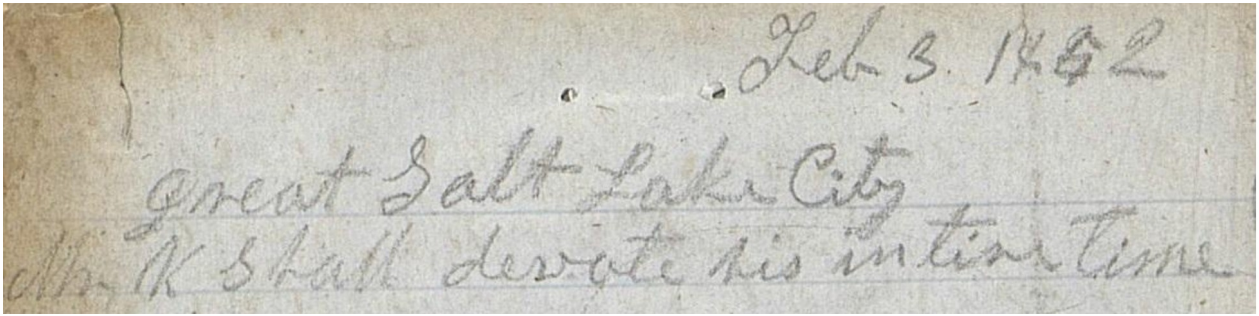 Feb 3. 1852
great Salt Lake City
Mr K Shall devote his intire Time